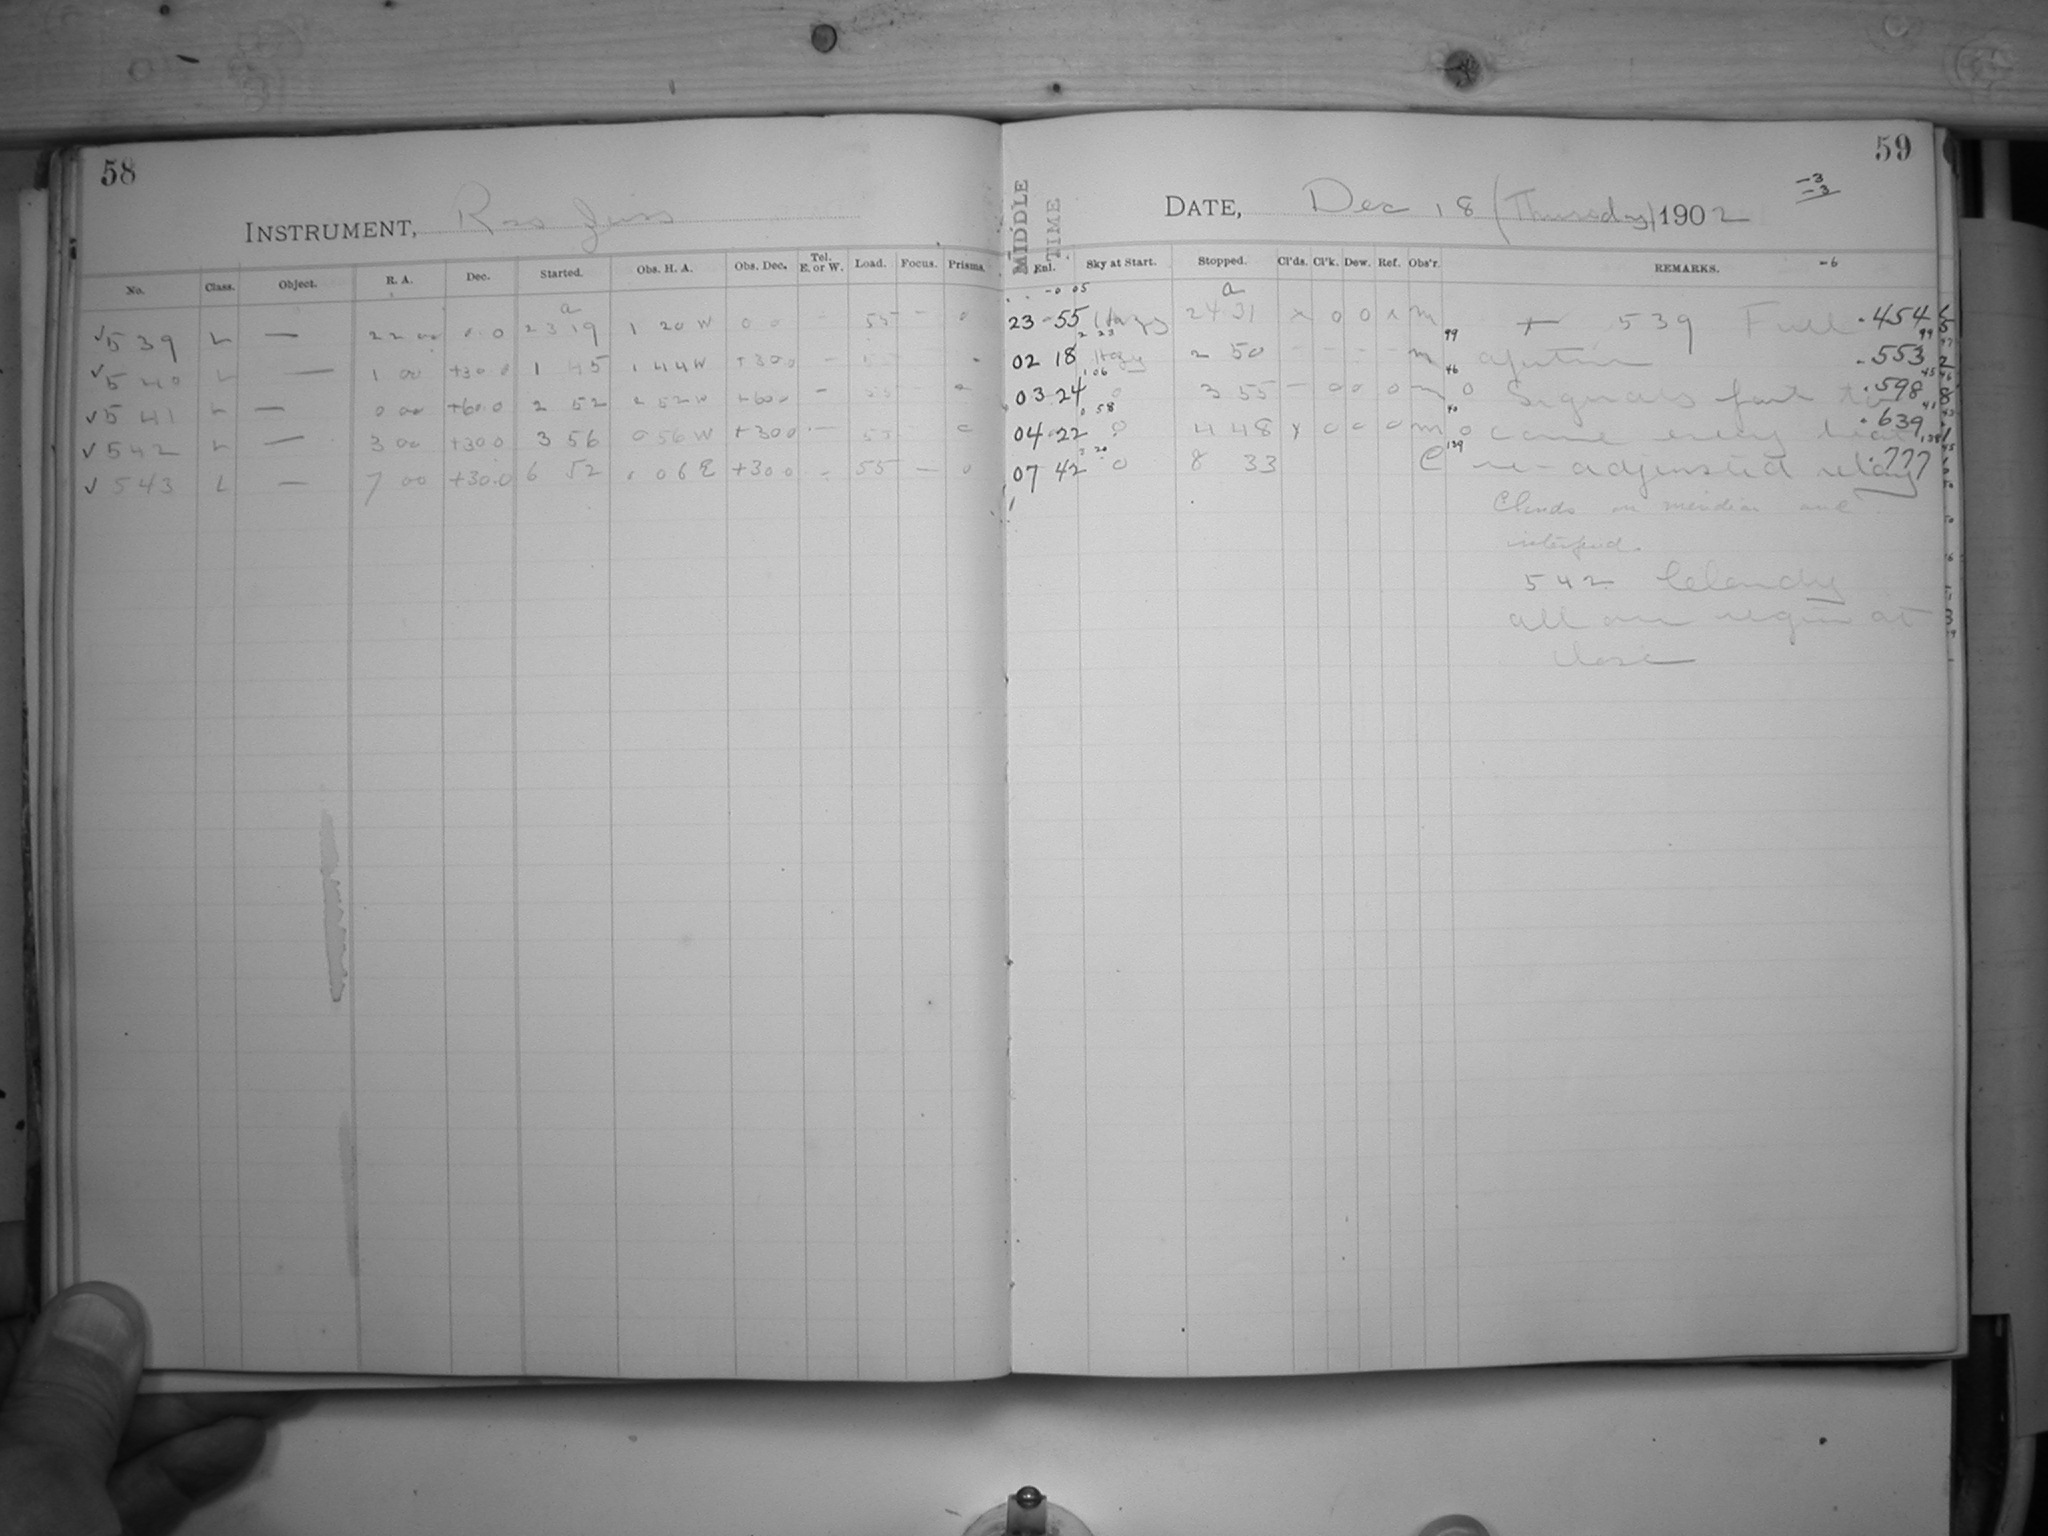 58
INSTRUMENT,
No. Class. Object. R. A. Dec. Started. Obs. H. A. Obs. Dec. Tel. E. or W. Load. Focus. Prisms.
a
✓539 L — 22 00 0 0 23 19 1 20 W 0 0 – 55 – 0
✓540 L — 1 00 +30.0 1 45 1 44 W +30 0 – 55
✓541 L — 0 00 +60.0 2 52 2 52 W +60 0 – 55 0
✓542 L — 3 00 +30 0 3 56 0 56 W +30 0 – 55 0
✓543 L — 7 00 +30.0 6 52 1 06 E +30 0 – 55 – 0
59
-3
-3
DATE, Dec 18 (Thursday) 1902
MIDDLE TIME
Enl. Sky at Start. Stopped. Cl'ds. Cl'k. Dew. Ref. Obs'r. REMARKS. -6
-0 05 a
23 55 Hazy 24 31 x 0 0 x m 99 + 539 Full .454
2 23 99
02 18 Hazy 2 50 – – – – m 46 .553
1 06 45
03 24 0 3 55 – 0 0 0 m 0 Signals .598
0 58 40 41
04 22 0 4 48 x 0 0 0 m 0 came every .639
3 20 139 138
07 42 0 8 33 C re-adjusted relay .777
Clouds on meridian and
542 Cloudy
all over region at
close